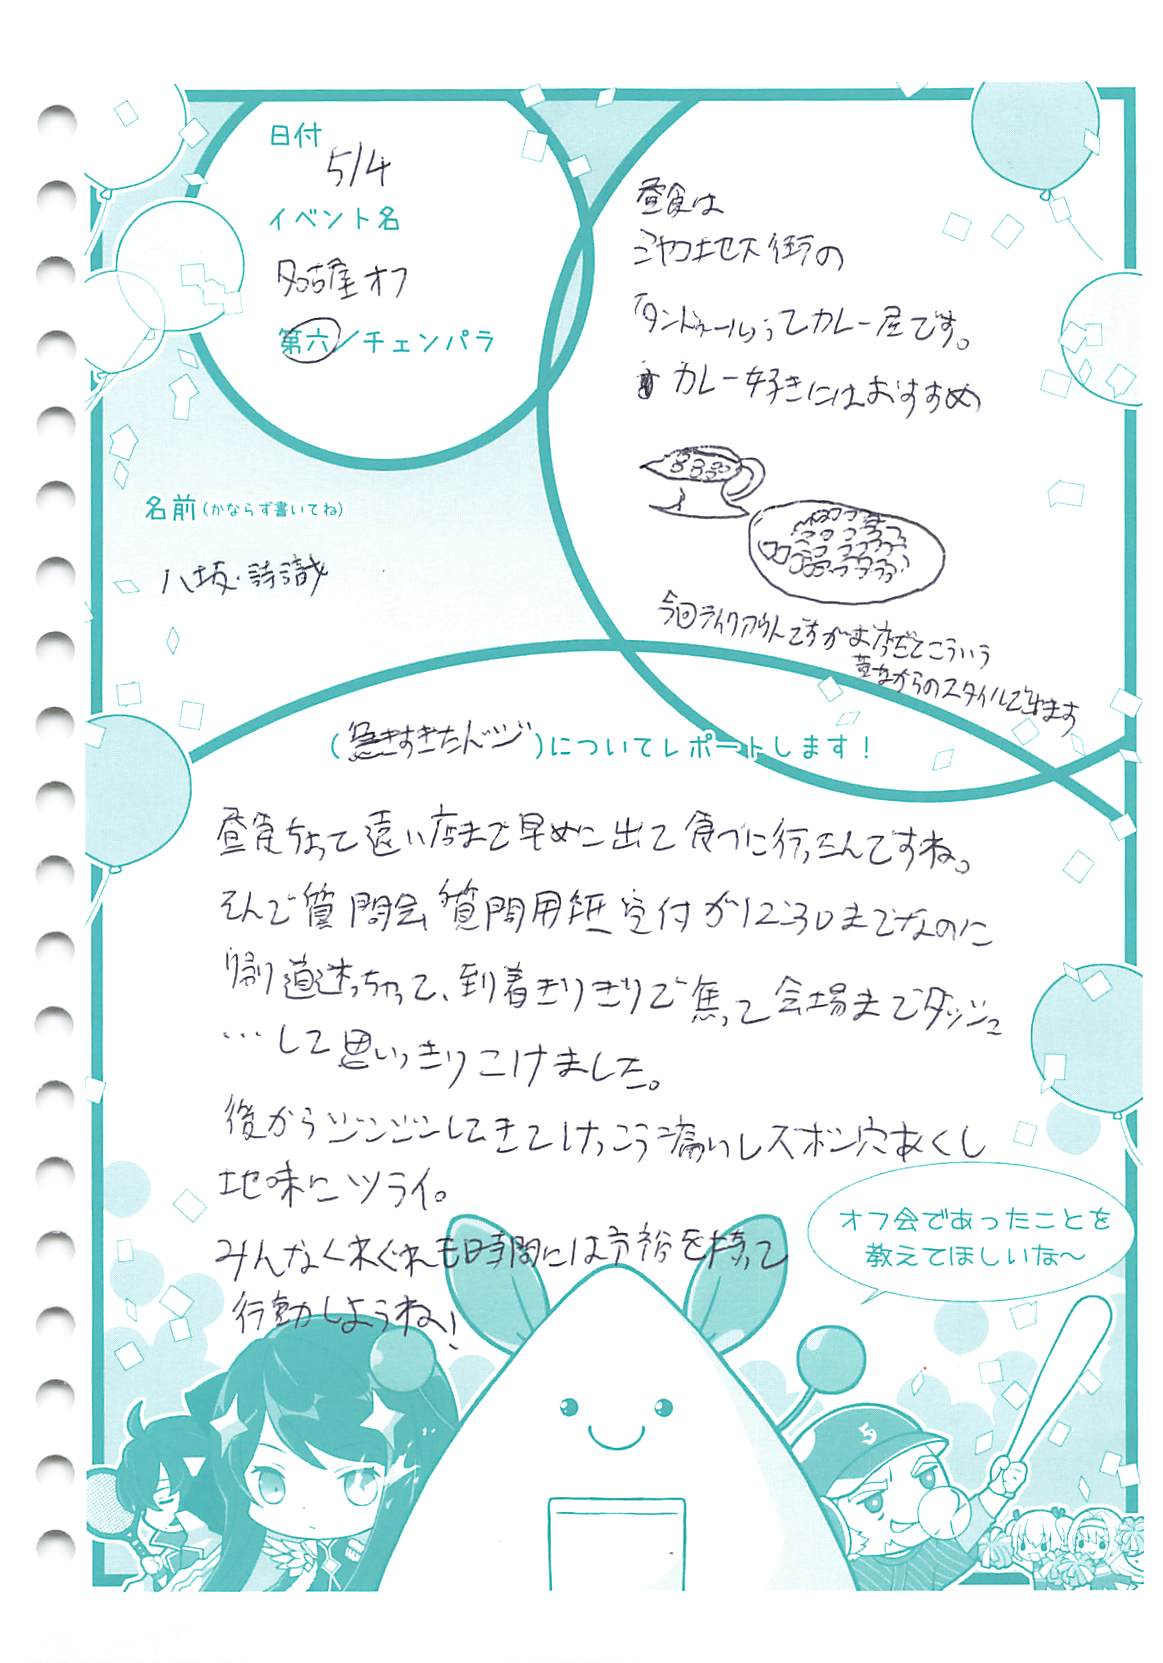 日付
5/4
イベント名
名古屋オフ
第六/チェンパラ
名前(かならず書いてね)
八坂・詩識
昼食は
ミヤコ地下街の
「タンドゥール」ってカレー屋です。
カレー好きにはおすすめ
今回テイクアウトですがお店だとこういう
昔ながらのスタイルで出ます
(急ぎすぎたドジ)についてレポートします!
昼食ちょっと遠い店まで早めに出て食べに行ったんですね。
そんで質問会質問用紙受付が12:30までなのに
帰り道迷っちゃって、到着ぎりぎりで焦って会場までダッシュ
…して思いっきりこけました。
後からジンジンしてきてけっこう痛いしズボン穴あくし
地味にツライ。
みんなくれぐれも時間には余裕を持って
行動しようね!
オフ会であったことを
教えてほしいな〜
5